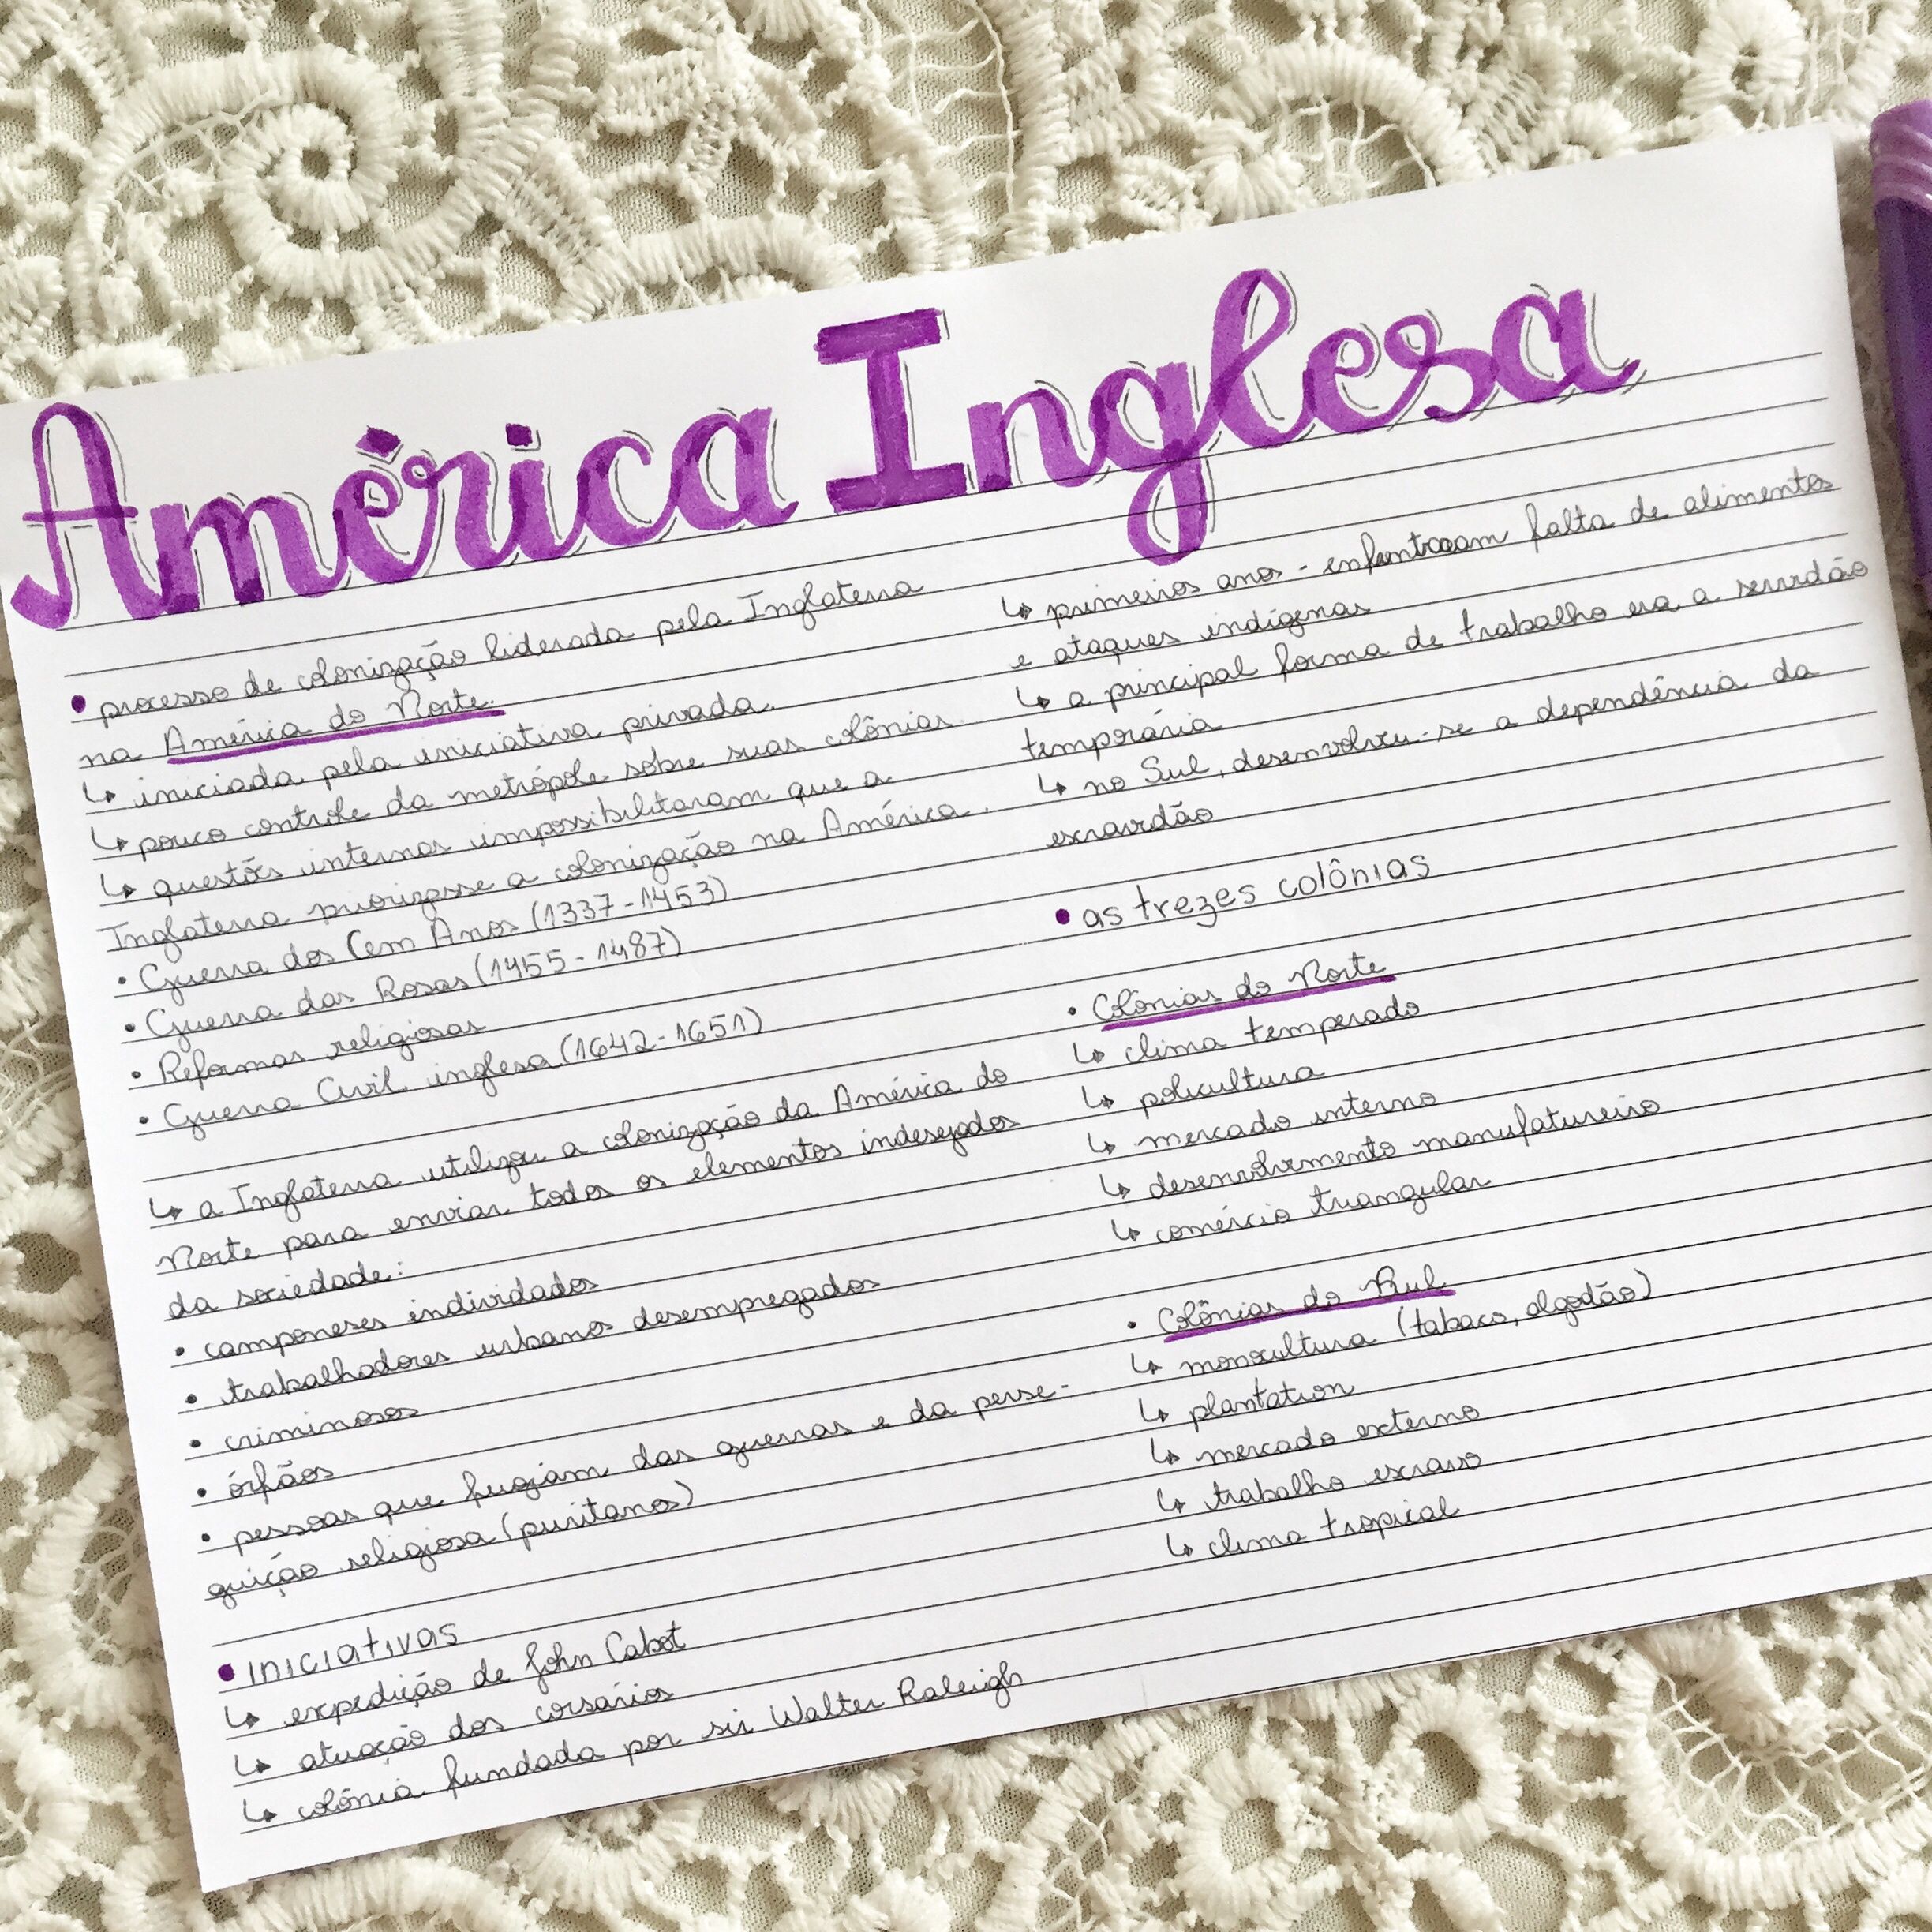 América Inglesa
• processo de colonização liderada pela Inglaterra
na América do Norte.
↳ iniciada pela iniciativa privada.
↳ pouco controle da metrópole sobre suas colônias.
↳ questões internas impossibilitaram que a
Inglaterra priorizasse a colonização na América.
• Guerra dos Cem Anos (1337-1453)
• Guerra das Rosas (1455-1487)
• Reformas religiosas
• Guerra Civil inglesa (1642-1651)
↳ a Inglaterra utilizou a colonização da América do
Norte para enviar todos os elementos indesejados
da sociedade:
• camponeses endividados
• trabalhadores urbanos desempregados
• criminosos
• órfãos
• pessoas que fugiam das guerras e da perse-
guição religiosa (puritanos)
• iniciativas
↳ expedição de John Cabot
↳ atuação dos corsários
↳ colônia fundada por sir Walter Raleigh
↳ primeiros anos - enfrentaram falta de alimentos
e ataques indígenas
↳ a principal forma de trabalho era a servidão
temporária
↳ no Sul, desenvolveu-se a dependência da
escravidão
• as trezes colônias
• Colônias do Norte
↳ clima temperado
↳ policultura
↳ mercado interno
↳ desenvolvimento manufatureiro
↳ comércio triangular
• Colônias do Sul
↳ monocultura (tabaco, algodão)
↳ plantation
↳ mercado externo
↳ trabalho escravo
↳ clima tropical